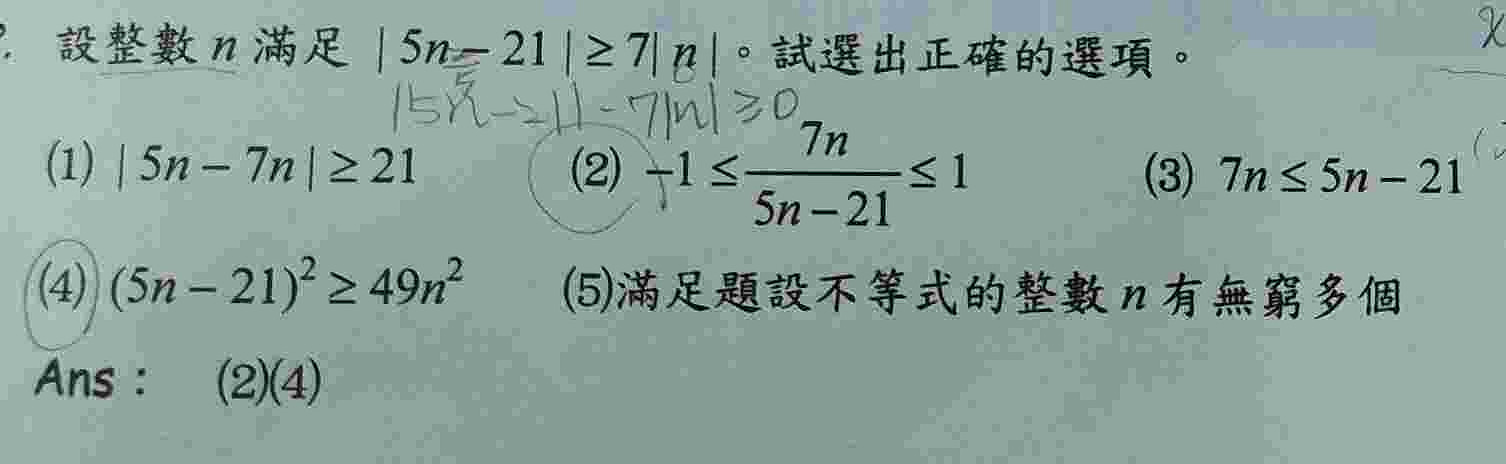 設整數 n 滿足 | 5n – 21 | ≥ 7| n |。試選出正確的選項。
|5n-21|-7|n| ≥0
(1) | 5n – 7n | ≥ 21 (2) –1 ≤ 7n/(5n – 21) ≤ 1 (3) 7n ≤ 5n – 21
(4) (5n – 21)² ≥ 49n² (5)滿足題設不等式的整數 n 有無窮多個
Ans : (2)(4)